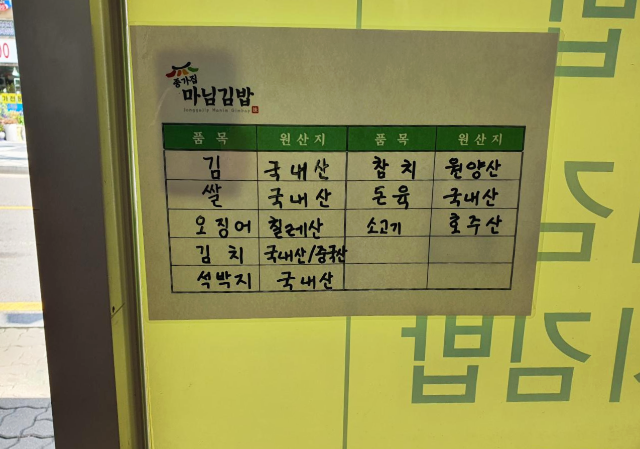 종가집
마님김밥
품목 원산지 품목 원산지
김 국내산 참치 원양산
쌀 국내산 돈육 국내산
오징어 칠레산 소고기 호주산
김치 국내산/중국산
석박지 국내산
김밥